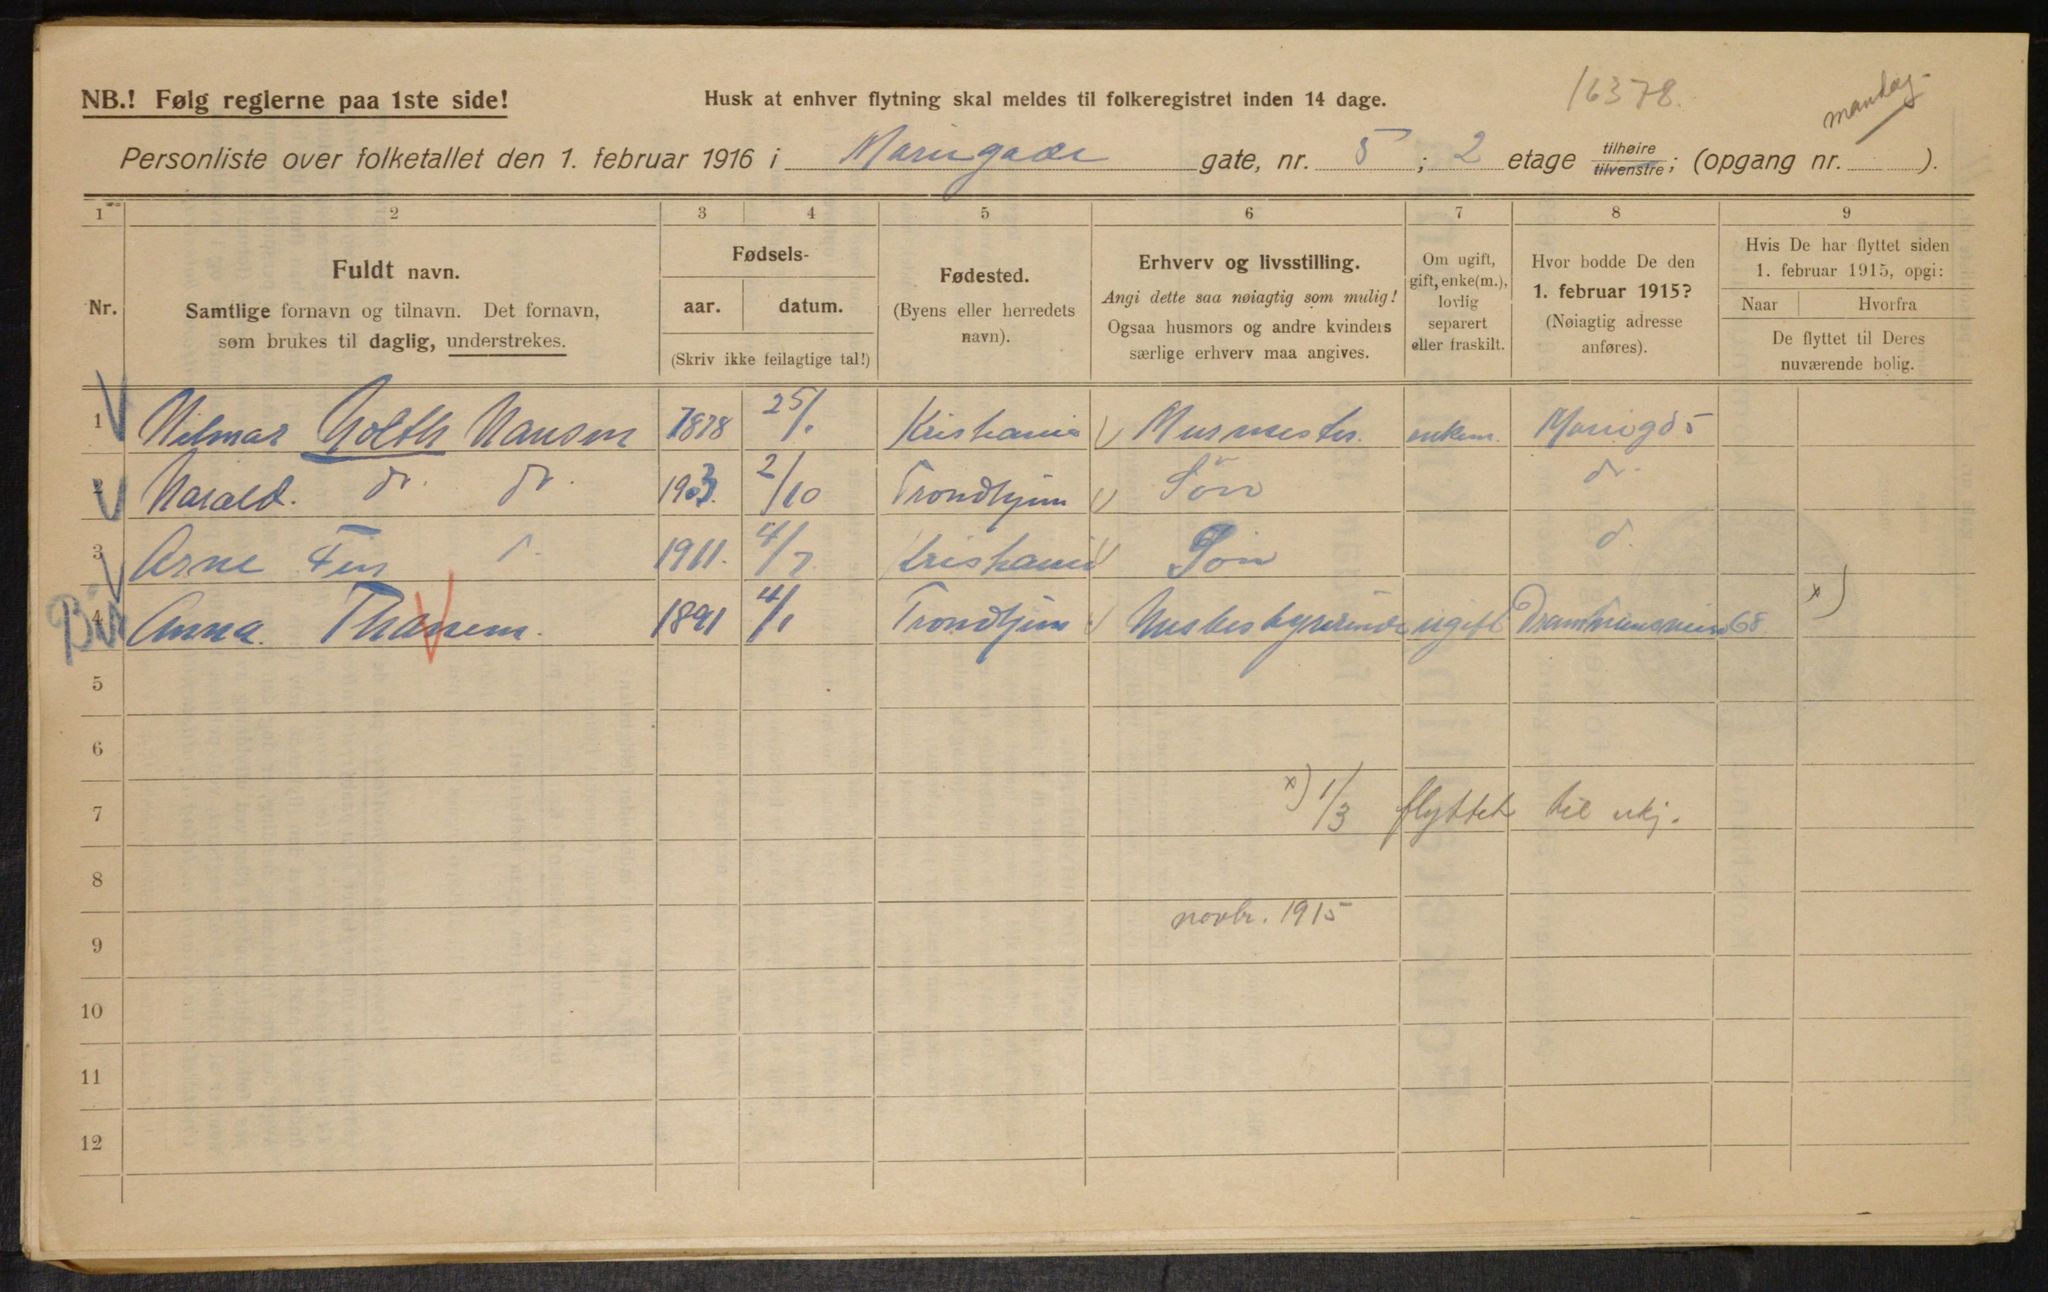 16378.
manday
NB.! Følg reglerne paa 1ste side!
Husk at enhver flytning skal meldes til folkeregistret inden 14 dage.
Personliste over folketallet den 1. februar 1916 i Mariegade gate, nr. 5 ; 2 etage tilhøire tilvenstre; (opgang nr. ).
1 2 3 4 5 6 7 8 9
Nr.
Fuldt navn.
Samtlige fornavn og tilnavn. Det fornavn,
som brukes til daglig, understrekes.
Fødsels-
aar. datum.
(Skriv ikke feilagtige tal!)
Fødested.
(Byens eller herredets
navn).
Erhverv og livsstilling.
Angi dette saa nøiagtig som mulig!
Ogsaa husmors og andre kvinders
særlige erhverv maa angives.
Om ugift,
gift, enke(m.),
lovlig
separert
eller fraskilt.
Hvor bodde De den
1. februar 1915?
(Nøiagtig adresse
anføres).
Hvis De har flyttet siden
1. februar 1915, opgi:
Naar Hvorfra
De flyttet til Deres
nuværende bolig.
1 Hilmar Hansen 1878 25/1 Kristiania Murmester. enkem. Marieg 5
2 Harald. do. do. 1903. 2/10 Trondhjem Søn do.
3 Arne Finn 1911. 4/7 Kristiania Søn d.
4 Anna Thanem. 1891 4/1 Trondhjem Husbestyrerinde ugift Drammensveien 68 x)
5
6
7 x) 1/3 flyttet til ukj.
8
9 novbr. 1915
10
11
12